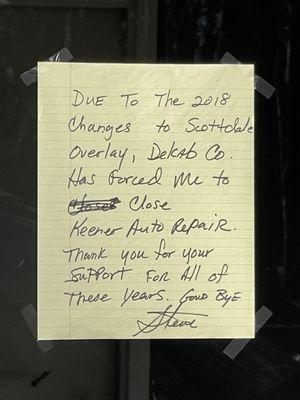 Due To The 2018
Changes to Scottdale
Overlay, DeKAb Co.
Has Forced Me to
Close
Keener Auto Repair.
Thank you for your
Support For All of
These Years. Good Bye
Steve